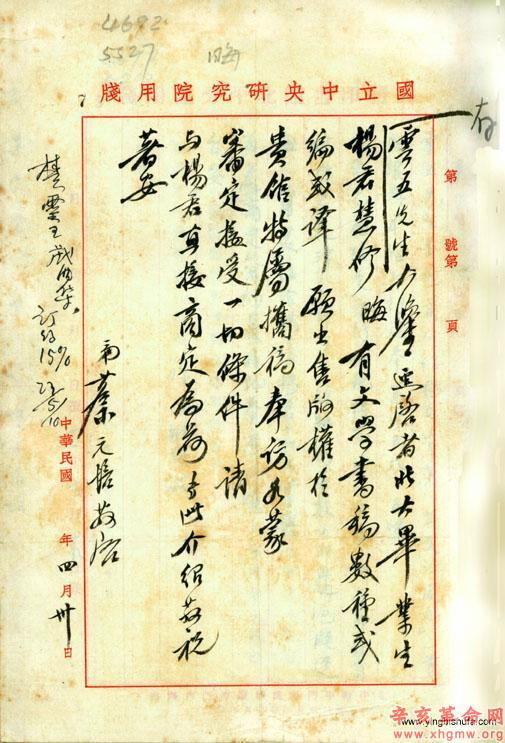 4692
5527
晦
國立中央研究院用牋
存
第 號第 頁
雲五先生大鑒逕啓者北大畢業生
楊君慧修 晦 有文學書稿數種或
編或譯願出售版權於
貴館特屬攜稿奉訪如蒙
審定接受一切條件請
與楊君直接商定爲荷專此介紹敬祝
著安
弟蔡元培敬啓
中華民國 年四月卅日
訂約15%
辛亥革命网
www.xhgmw.org
www.yingbishufa.com